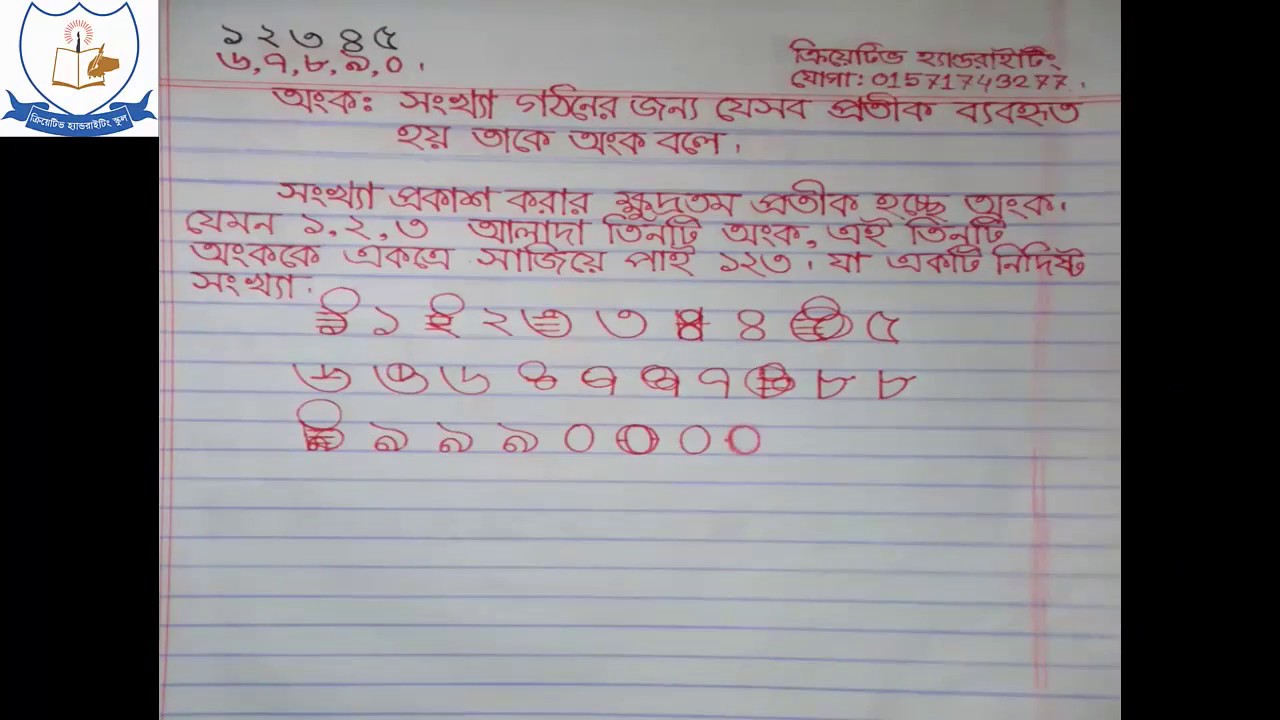 ক্রিয়েটিভ হ্যান্ডরাইটিং স্কুল
১ ২ ৩ ৪ ৫
৬, ৭, ৮, ৯, ০.
ক্রিয়েটিভ হ্যান্ডরাইটিং
যোগা: 01571743277.
অংক: সংখ্যা গঠনের জন্য যেসব প্রতীক ব্যবহৃত
হয় তাকে অংক বলে।
সংখ্যা প্রকাশ করার ক্ষুদ্রতম প্রতীক হচ্ছে অংক।
যেমন ১, ২, ৩ আলাদা তিনটি অংক, এই তিনটি
অংককে একত্রে সাজিয়ে পাই ১২৩। যা একটি নির্দিষ্ট
সংখ্যা।
১ ১ ২ ২ ৩ ৩ ৪ ৪ ৫ ৫
৬ ৬ ৬ ৭ ৭ ৭ ৭ ৮ ৮ ৮
৯ ৯ ৯ ৯ ০ ০ ০ ০